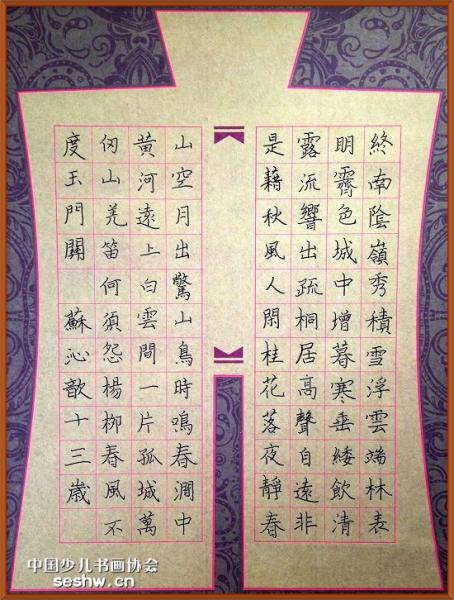 終南陰嶺秀積雪浮雲端林表
明霽色城中增暮寒垂緌飲清
露流響出疏桐居高聲自遠非
是藉秋風人閑桂花落夜靜春
山空月出驚山鳥時鳴春澗中
黃河遠上白雲間一片孤城萬
仞山羌笛何須怨楊柳春風不
度玉門關 蘇沁歆十三歲
中国少儿书画协会
seshw.cn